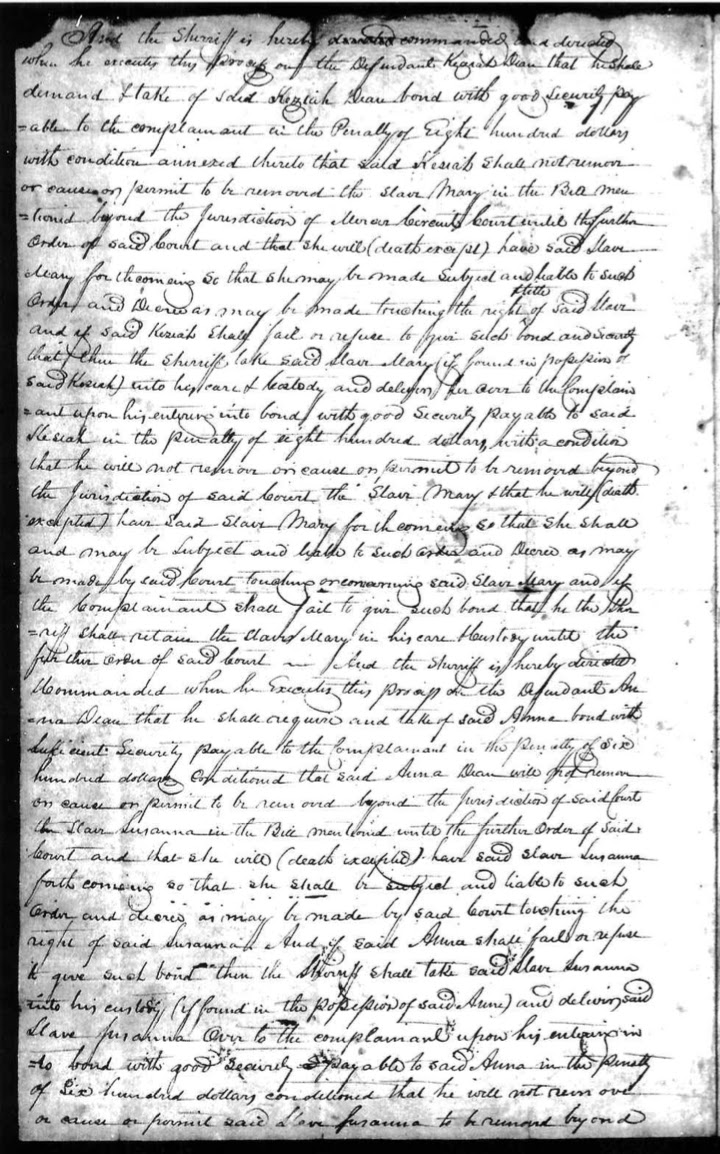 And the Sherriff is hereby commanded and directed
when he executes this process on the Defendant Keziah Dean that he shall
demand & take of said Keziah Dean bond with good Security pay
=able to the complainant in the Penalty of Eight hundred dollars
with condition annexed thereto that said Kesiah shall not remove
or cause or permit to be removed the slave Mary in the Bill men
=tioned beyond the Jurisdiction of Mercer Circuit Court until the further
Order of said Court and that she will (death except) have said slave
Mary forthcoming so that she may be made subject and liable to such
Order and Decree as may be made touching the right & title of said slave
and if said Keziah shall fail or refuse to give such bond and Security
that then the Sherriff take said slave Mary (if found in possession of
said Kesiah) into his care & Custody and deliver her over to the Complain
=ant upon his entering into bond with good Security payable to said
Kesiah in the penalty of eight hundred dollars, with a condition
that he will not remove or cause or permit to be removed beyond
the Jurisdiction of said Court the Slave Mary & that he will (death
excepted) have said Slave Mary forthcoming so that she shall
and may be subject and liable to such Order and Decree as may
be made by said Court touching or concerning said Slave Mary and if
the Complainant shall fail to give such bond that he the Sher
=riff shall retain the slave Mary in his care & Custody until the
further Order of said Court — And the Sherriff is hereby directed
& Commanded when he Executes this process on the Defendant An
=na Dean that he shall require and take of said Anna bond with
sufficient Security payable to the Complainant in the penalty of Six
hundred dollars Conditioned that said Anna Dean will not remove
or cause or permit to be removed beyond the Jurisdiction of said Court
the Slave Susanna in the Bill mentioned until the further Order of said
Court and that she will (death excepted) have said slave Susanna
forthcoming so that she shall be subject and liable to such
Order and decree as may be made by said Court touching the
right of said Susanna. And if said Anna shall fail or refuse
to give such bond then the Sherriff shall take said Slave Susanna
into his custody (if found in the possession of said Anna) and deliver said
Slave Susanna over to the complainant upon his entering in
-to bond with good Security payable to said Anna in the penalty
of Six hundred dollars conditioned that he will not remove
or cause or permit said slave Susanna to be removed beyond